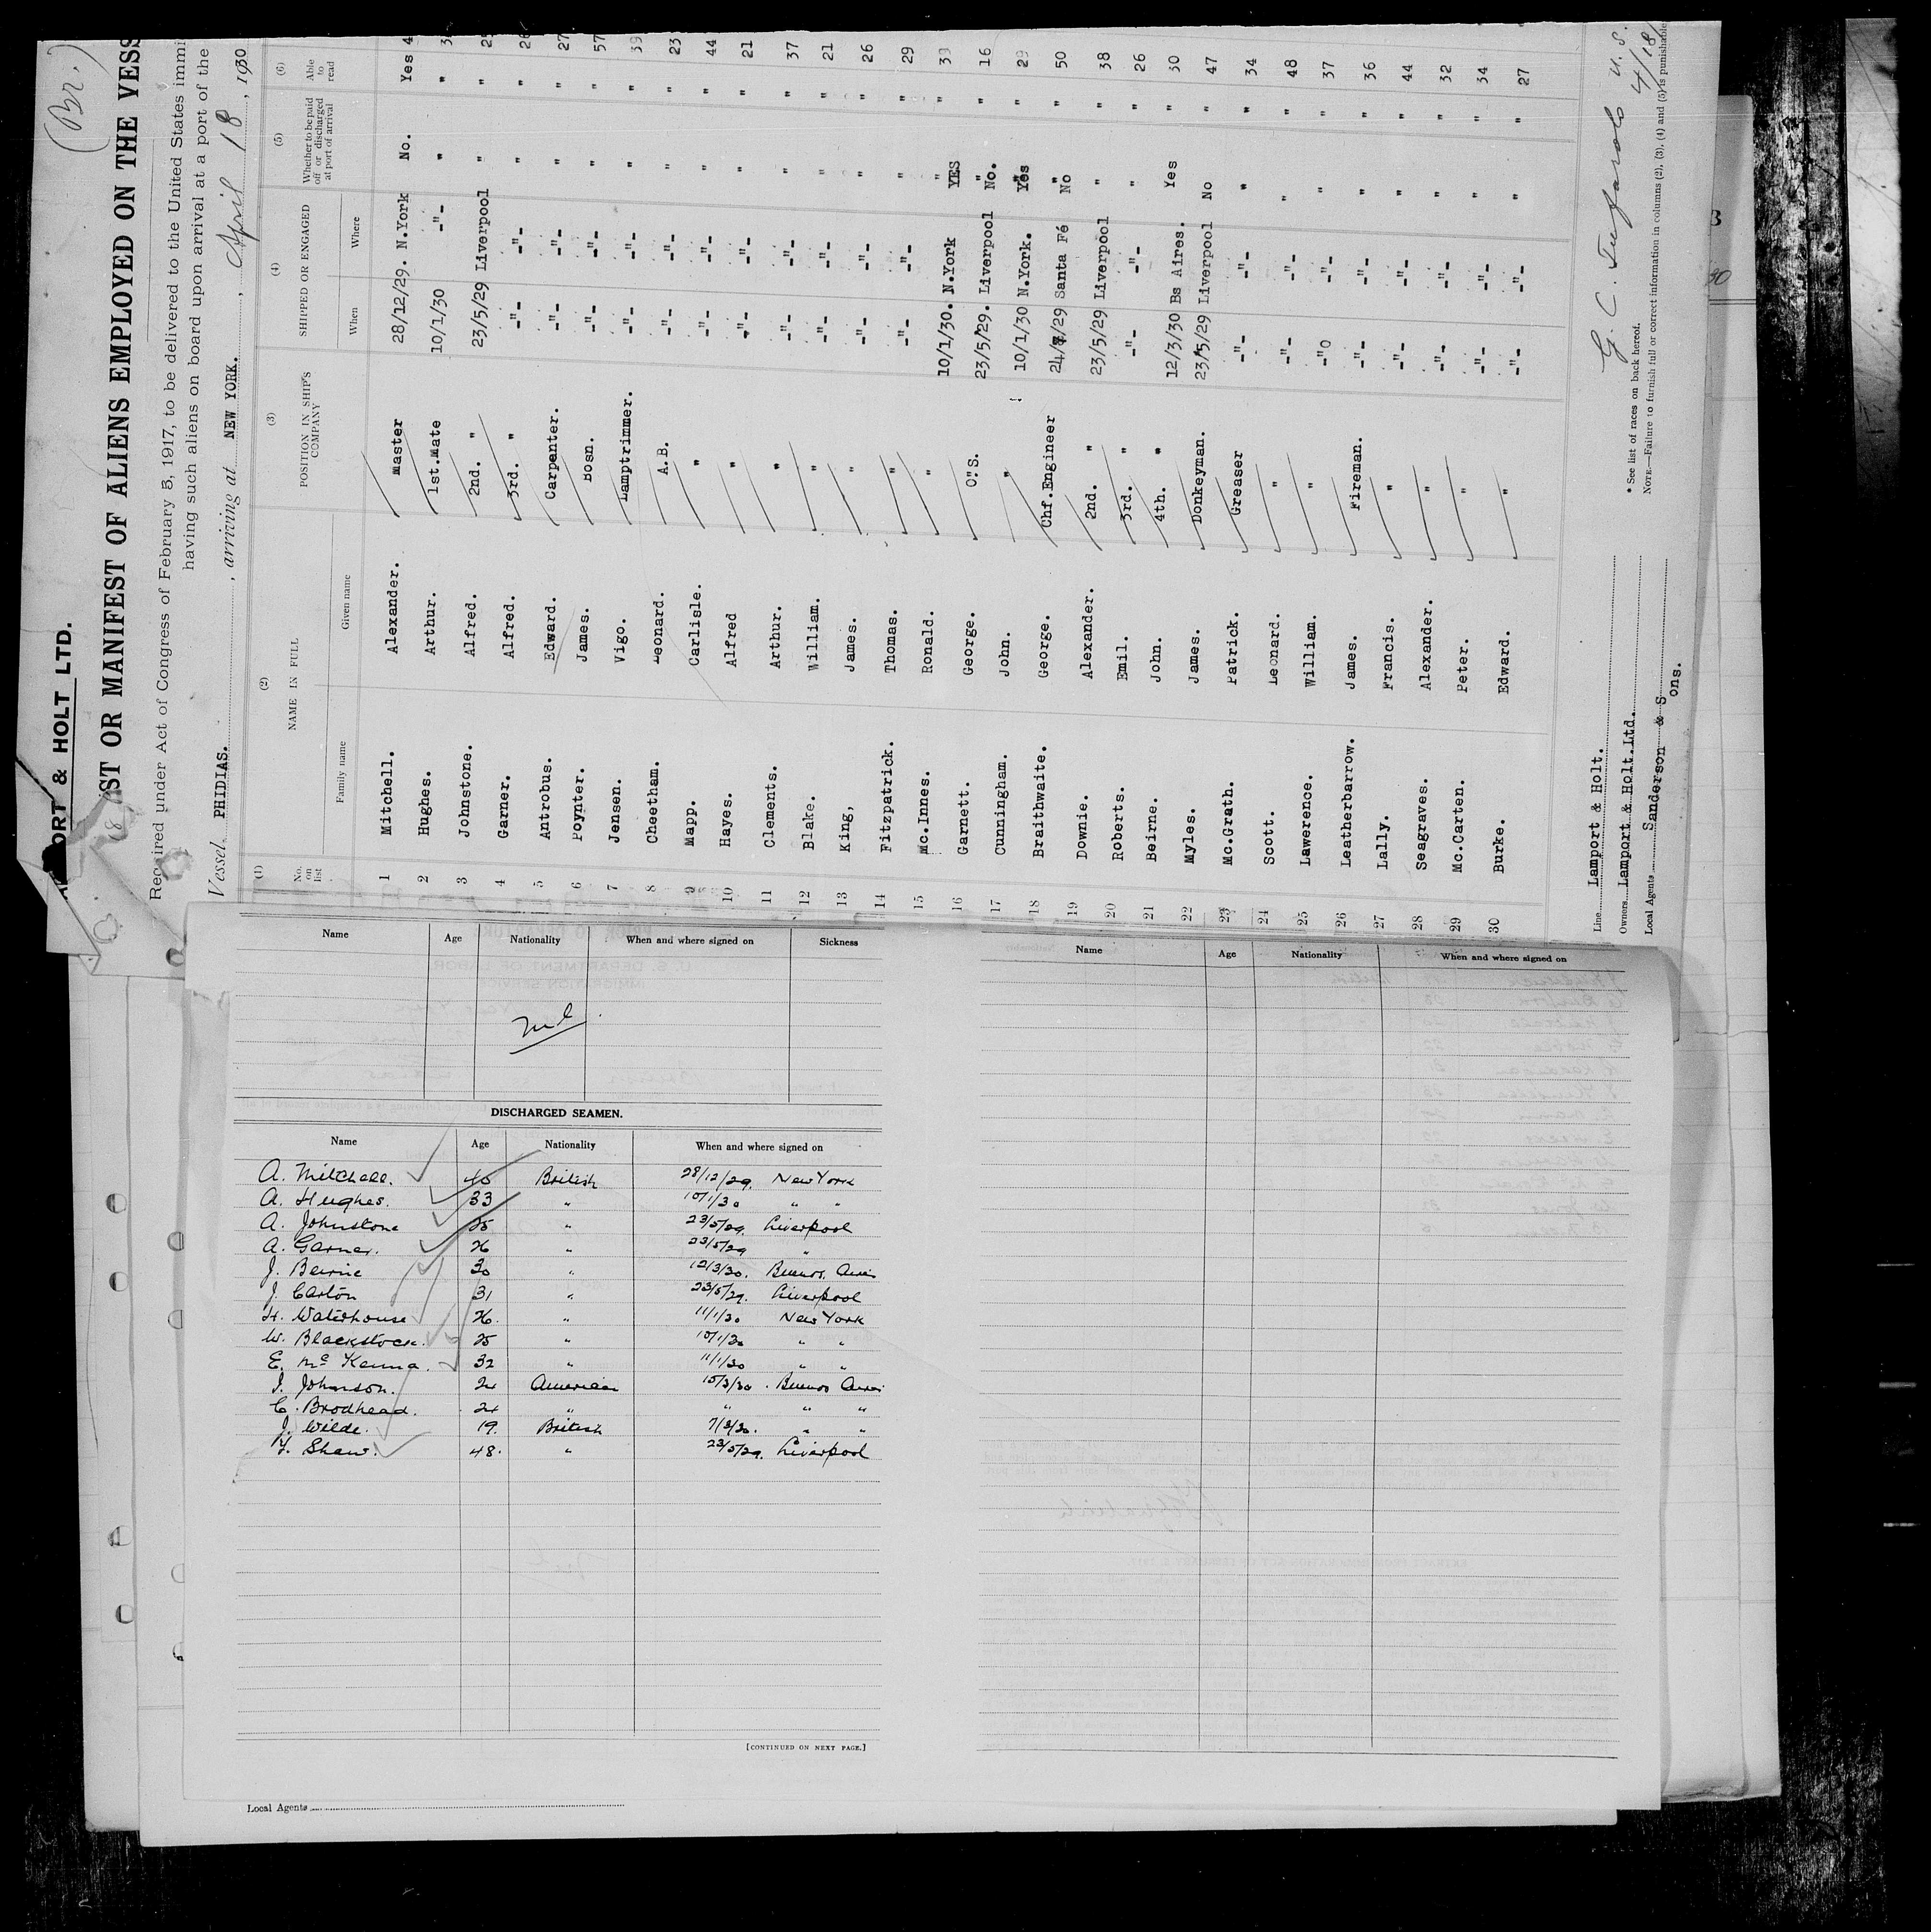 (Br.)
ORT & HOLT LTD.
ST OR MANIFEST OF ALIENS EMPLOYED ON THE VESS
Required under Act of Congress of February 5, 1917, to be delivered to the United States immi
having such aliens on board upon arrival at a port of the
Vessel PHIDIAS. , arriving at NEW YORK. , April 18 , 1930
(1) (2) (3) (4) (5) (6)
No. on list NAME IN FULL POSITION IN SHIP'S COMPANY SHIPPED OR ENGAGED Whether to be paid off or discharged at port of arrival Able to read
Family name Given name When Where
1 Mitchell. Alexander. Master 28/12/29. N.York No. Yes 4
2 Hughes. Arthur. 1st.Mate 10/1/30 -"- " " 3
3 Johnstone. Alfred. 2nd. " 23/5/29 Liverpool " " 25
4 Garner. Alfred. 3rd. " -"- -"- " " 26
5 Antrobus. Edward. Carpenter. -"- -"- " " 27
6 Poynter. James. Bosn. -"- -"- " " 57
7 Jensen. Vigo. Lamptrimmer. -"- -"- " " 39
8 Cheetham. Leonard. A.B. -"- -"- " " 23
9 Mapp. Carlisle. " -"- -"- " " 44
10 Hayes. Alfred " -"- -"- " " 21
11 Clements. Arthur. " -"- -"- " " 37
12 Blake. William. " -"- -"- " " 21
13 King, James. " -"- -"- " " 26
14 Fitzpatrick. Thomas. " -"- -"- " " 29
15 Mc.Innes. Ronald. " 10/1/30. N.York YES " 39
16 Garnett. George. O.S. 23/5/29. Liverpool No. " 16
17 Cunningham. John. " 10/1/30 N.York. Yes " 29
18 Braithwaite. George. Chf.Engineer 24/8/29 Santa Fé No " 50
19 Downie. Alexander. 2nd. " 23/5/29 Liverpool " " 38
20 Roberts. Emil. 3rd. " -"- -"- " " 26
21 Beirne. John. 4th. " 12/3/30 Bs Aires. Yes " 30
22 Myles. James. Donkeyman. 23/5/29 Liverpool No " 47
23 Mc.Grath. Patrick. Greaser -"- -"- " " 34
24 Scott. Leonard. " -"- -"- " " 48
25 Lawerence. William. " -"0 -"- " " 37
26 Leatherbarrow. James. Fireman. -"- -"- " " 36
27 Lally. Francis. " -"- -"- " " 44
28 Seagraves. Alexander. " -"- -"- " " 32
29 Mc.Carten. Peter. " -"- -"- " " 34
30 Burke. Edward. " -"- -"- " " 27
Line Lamport & Holt.
Owners Lamport & Holt.Ltd.
Local Agents Sanderson & Sons.
U. S.
4/18/
* See list of races on back hereof.
NOTE.—Failure to furnish full or correct information in columns (2), (3), (4) and (5) is punishable
Name Age Nationality When and where signed on Sickness
Nil
DISCHARGED SEAMEN.
Name Age Nationality When and where signed on
A. Mitchell. 40 British 28/12/29. New York
A. Hughes. 33 " 10/1/30 " "
A. Johnstone 25 " 23/5/29. Liverpool
A. Garner. 26 " 23/5/29 "
J. Beirne 30 " 12/3/30. Buenos Aires
J. Carton 31 " 23/5/29. Liverpool
H. Waterhouse 26. " 11/1/30 New York
W. Blackstock. 25 " 10/1/30 " "
E. McKenna. 32 " 11/1/30 " "
I. Johnson. 24 American 15/3/30. Buenos Aires
C. Brodhead. 24 " " " "
J. Wilde. 19. British 7/3/30. " "
Y. Shaw. 48. " 23/5/29. Liverpool
[CONTINUED ON NEXT PAGE.]
Local Agents
Name Age Nationality When and where signed on